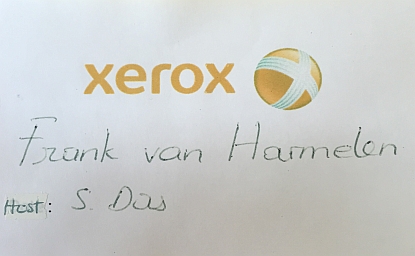 xerox
Frank van Harmelen
Host: S. Das